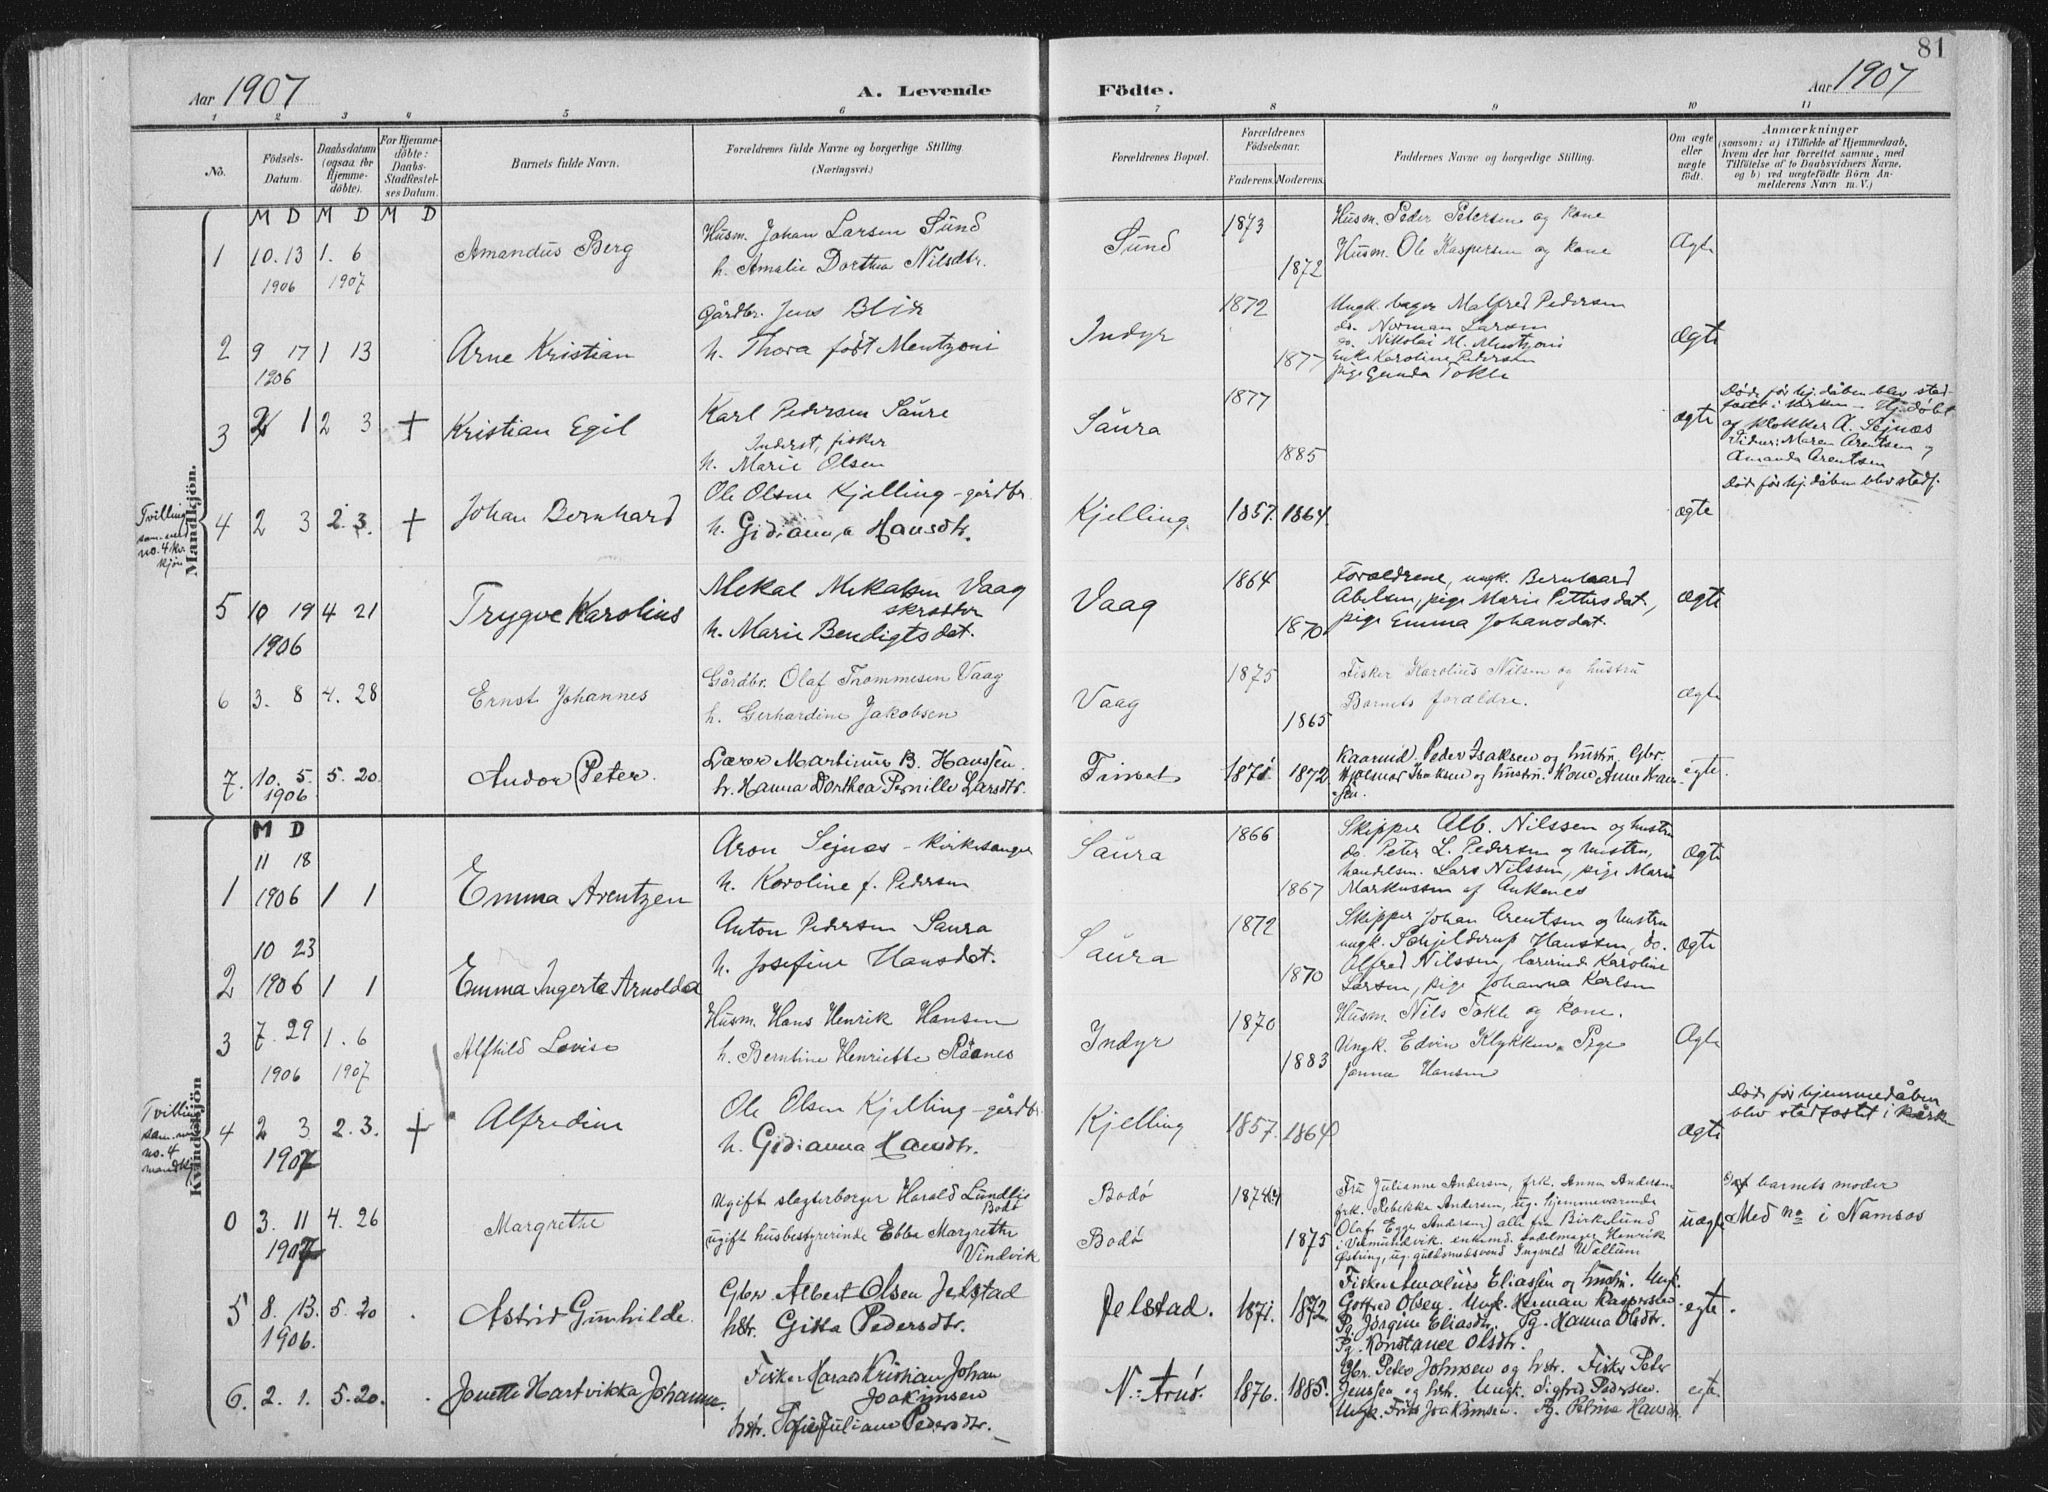 81
Aar 1907 A. Levende Födte. Aar 1907
1 2 3 4 5 6 7 8 9 10 11
No. Födsels-Datum. Daabsdatum (ogsaa for Hjemme-döbte). For Hjemme-döbte: Daabs-Stadfæstel-ses Datum. Barnets fulde Navn. Forældrenes fulde Navne og borgerlige Stilling (Næringsvei.) Forældrenes Bopæl. Forældrenes Födselsaar. Faderens. Moderens. Faddernes Navne og borgerlige Stilling. Om ægte eller uægte födt. Anmærkninger (saasom: a) i Tilfælde af Hjemmedaab, hvem der har forrettet samme, med Tilföielse af to Daabsvidners Navne. og b) ved uægtefödte Börn Anmelderens Navn m. V.)
Mandkjön.
M D M D M D
1 10. 13 1. 6 Amandus Berg
1906 1907
Husm. Johan Larsen Sund
h. Amalie Dorthea Nilsdtr.
Sund 1873 1872
Husm. Peder Petersen og kone
Husm. Ole Kaspersen og kone
Ægte
2 9 17 1 13 Arne Kristian
1906
Gårdbr. Jens Blix
h. Thora født Mentzoni
Indyr 1872 1877
Ungk. bager Malfred Pedersen
do. Norman Larsen
do. Nikolai M. Mentzoni
Enke Karoline Pedersen
pige Gunda Tokle
ægte
3 2 1 2 3 + Kristian Egil
Karl Pedersen Saura
Inderst, fisker
h. Marie Olsen
Saura 1877 1885 ægte
Døde før hj. dåben blev stad-
fæstet i kirken - Hj. døbt
af klokker A. Sejnæs
Vidner: Maren Arentsen og
Amanda Arentsen
Tvilling
sam. med
no. 4 kv.
kjøn
4 2 3 2. 3. + Johan Bernhard
Ole Olsen Kjelling - gårdbr.
h. Gidianna Hansdtr.
Kjelling. 1857. 1864. ægte
Døde før hj. dåben blev stadf.
5 10 19 4 21 Trygve Karolius
1906
Mekal Mekalsen Vaag
skrædder
h. Marie Bendigtsdat.
Vaag 1864 1870
Forældrene, ungk. Bernhard
Abelsen, pige Marie Pettersdat,
pige Emma Johansdat.
ægte
6 3. 8 4. 28 Ernst Johannes
Gårdbr. Olaf Thommesen Vaag
h. Gerhardine Jakobsen
Vaag 1875 1865
Fisker Karolius Nilsen og hustru
Barnets forældre.
Ægte
7. 10. 5. 5. 20. Andor Peter.
1906.
Lærer Martinus B. Hanssen.
h. Hanna Dorthea Pernille Larsdtr.
1871 1872
Kaarmd. Peder Isaksen og hustru. Gbr.
Hjelmar Isaksen og hustru. Kone Anne Han-
sen.
egte.
Kvindekjön
M D
1 11 18 1 1 Emma Arentzen
1906
Aron Sejnæs - kirkesanger
h. Karoline f. Pedersen
Saura 1866 1867
Skipper Alb. Nilssen og hustru
do. Peter L. Pedersen og hustru,
handelsm. Lars Nilssen, pige Marie
Markussen af Ankenes
ægte
2 10 23 1 1 Emma Ingerta Arnolda
1906
Anton Pedersen Saura
h. Josefine Hansdat.
Saura 1872 1870
Skipper Johan Arentsen og hustru
ungk. Schjelderup Hanssen, do.
Alfred Nilssen, lærerinde Karoline
Larsen, pige Johanna Karlsen
ægte
3 7. 29 1. 6 Alfhild Lovise
1906 1907
Husm. Hans Henrik Hansen
h. Berntine Henriette Råånes
Indyr 1870 1883
Husm. Nils Tokle og kone.
Ungk. Edvin Klykken. Pige
Janna Hansen
Ægte
Tvilling
sam. m.
no. 4
mandkj.
4 2 3 2. 3. + Alfredine
1907
Ole Olsen Kjelling - gårdbr.
h. Gidianna Hansdtr.
Kjelling 1857. 1864 ægte
Døde før hjemmedåben
blev stadfæstet i kirken
0 3. 11 4. 26 Margrethe
1907
Ugift slagterborger Harald Lundlie
Bodø
ugift husbestyrerinde Ebba Margrethe
Vindvik
Bodø
Bodø
1874 1875
Fru Julianne Andersen, frk. Anna Andersen
frk. Rebekka Andersen, ug. hjemmeværende
Olaf Egge Andersen) alle fra Birkelund
i Vemundvik. enkemd. sadelmager Henrik
Østring, ug. guldsmedsvend Ingvald Wallum
uægte
af barnets moder
Med no i Namsos
5 8. 13. 5. 20 Astrid Gunhilde.
1906.
Gbr. Albert Olsen Jelstad
hstr. Gitta Pedersdtr.
Jelstad. 1871. 1872.
Fisker Amalius Eliassen og hustru. Ungk.
Gotfred Olsen. Ungk. Herman Kaspersen
Pg. Jørgine Eliasdtr. Pg. Hanna Olsdtr.
Pg. Konstance Olsdtr.
egte.
6. 2. 1. 5. 20. Jenette Hartvikka Johanne.
Fisker Harald Kristian Johan
Joakimsen
hstr. Sofie Juliane Pedersdtr.
N. Arnø. 1876. 1885.
Gbr. Peter Johnsen og hstr. Fisker Peter
Jenssen og hstr. Ungk. Sigfred Pedersen.
Ungk. Frits Joakimsen. Pg. Petrine Hansdtr.
egte.